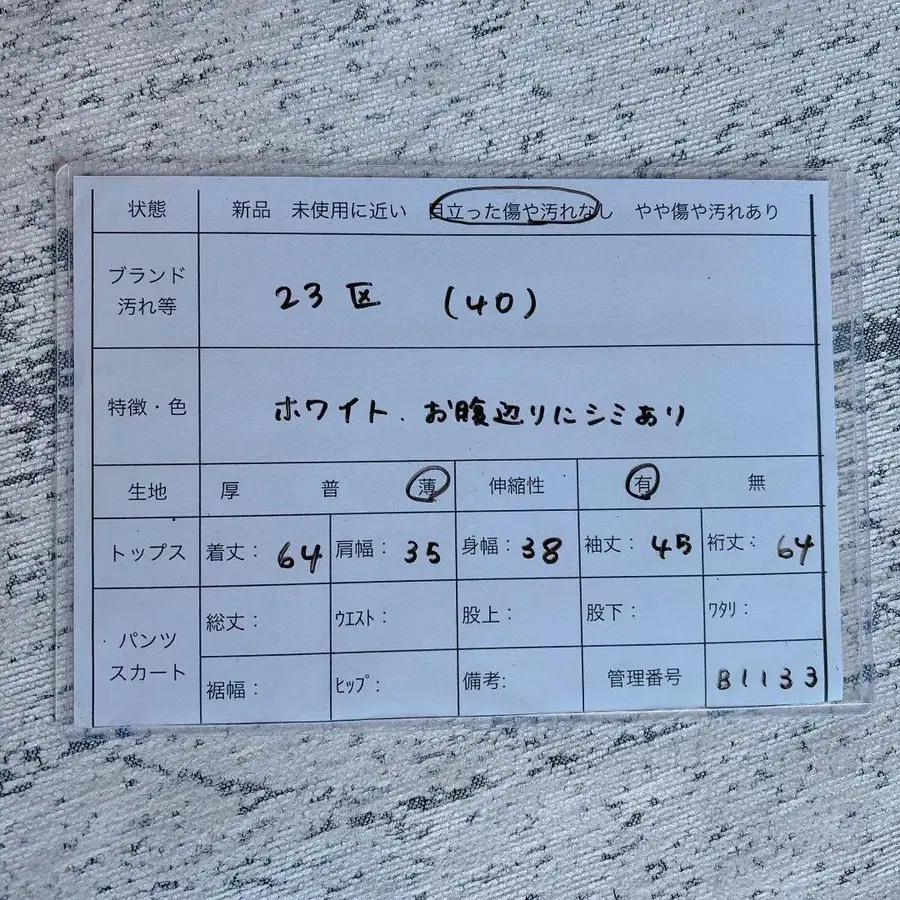 状態 新品 未使用に近い 目立った傷や汚れなし やや傷や汚れあり
ブランド
汚れ等
23区 (40)
特徴・色 ホワイト. お腹辺りにシミあり
生地 厚 普 薄 伸縮性 有 無
トップス 着丈: 64 肩幅: 35 身幅: 38 袖丈: 45 裄丈: 64
パンツ
スカート
総丈: ウエスト: 股上: 股下: ワタリ:
裾幅: ヒップ: 備考: 管理番号 B1133